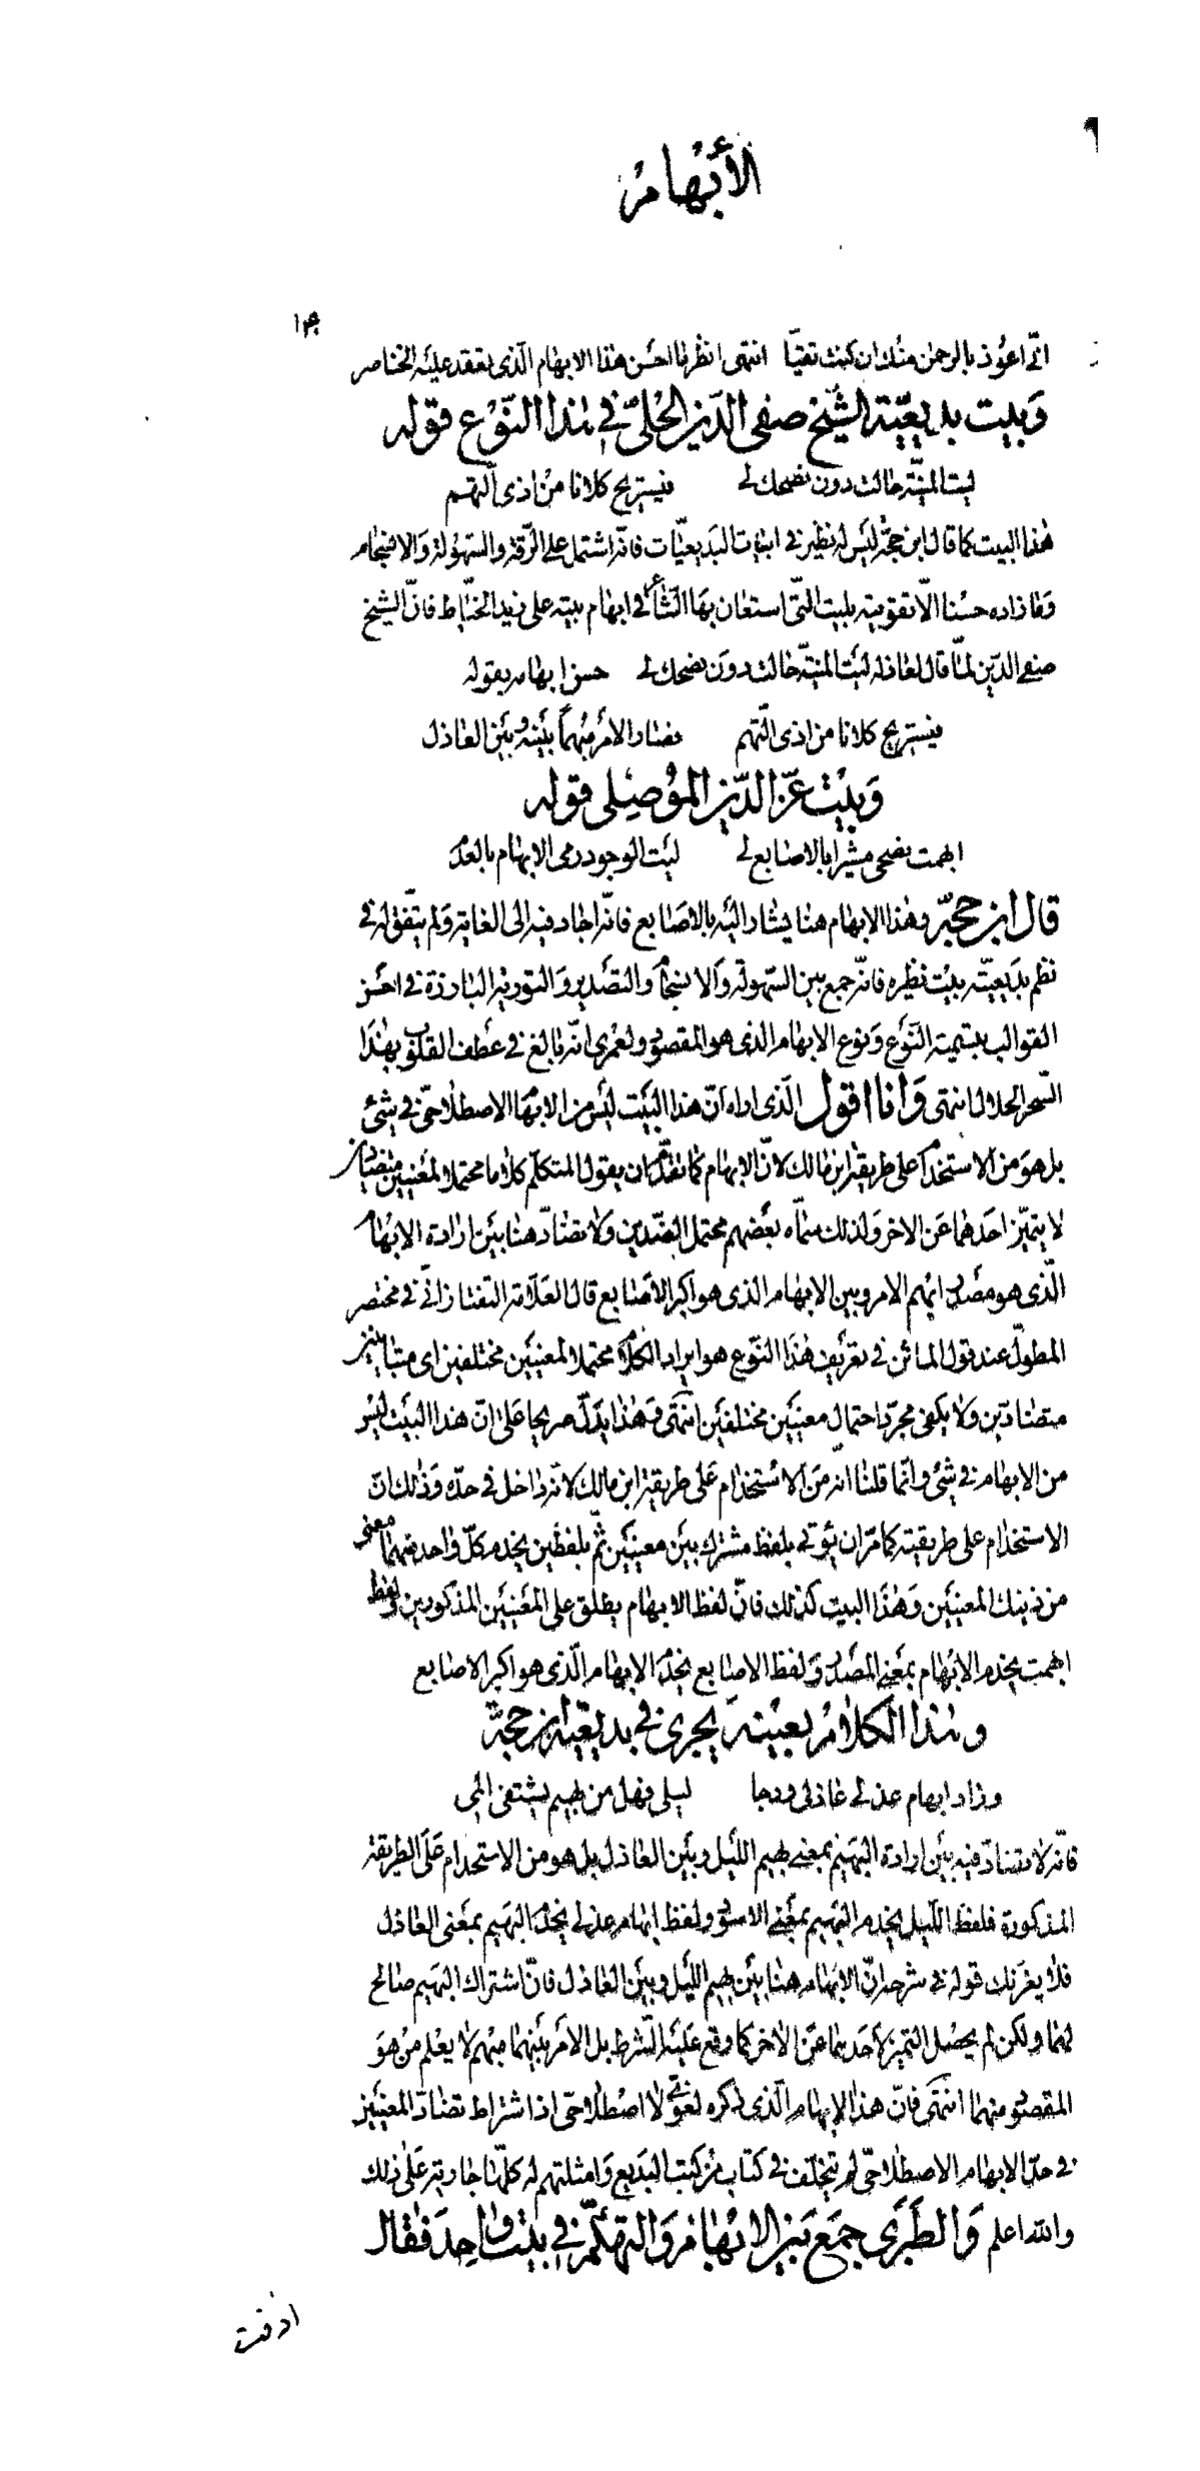 الأبهام
١٣٩
انّى اعوذ بالرحمن منك ان كنت تقيّا انتهى انظر ما احسن هذا الابهام الّذى تعقد عليه الخناصر
وبيت بديعيّة الشيخ صفى الدّين الحلّىّ فى هذا النّوع قوله
ليت المنيّة حالت دون نصحك لى فيستريح كلانا من اذى التّهم
هذا البيت كما قال ابن حجّة ليس له نظير فى ابيات البديعيّات فانّه اشتمل على الرّقّة والسّهولة والانسجام
وما زاده حسنا الّا تقويته بليت الّتى استعان بها الشّاعر فى ابهام بيته على زيد الخيّاط فانّ الشيخ
صفى الدّين لمّا قال لعاذله ليت المنيّة حالت دون نصحك لى حسن ابهامه بقوله
فيستريح كلانا من اذى التّهم فصار الامر مبهما بينه وبين العاذل
وبيت عزّ الدّين الموصلى قوله
ابهمت نصحى مشيرا بالاصابع لى ليت الوجود رمى الابهام بالعدم
قال ابن حجّة وهذا الابهام هنا يشار اليه بالاصابع فانّه اجاد فيه الى الغاية ولم يتّفق له فى
نظم بديعيّته بيت نظيره فانّه جمع بين السّهولة والانسجام والتصدير والتورية البارزة فى احسن
القوالب بتسمية النّوع ونوع الابهام الذى هو المقصود ولعمرى انّه بالغ فى عطف القلوب بهذا
السّحر الحلال انتهى وانا اقول الّذى اراه انّ هذا البيت ليس من الابهام الاصطلاحىّ فى شئ
بل هو من الاستخدام على طريقة ابن مالك لانّ الابهام كما تقدّم ان يقول المتكلّم كلاما محتملا لمعنيين متضادين
لا يتميّز احدهما عن الاخر ولذلك سمّاه بعضهم محتمل الضّدّين ولا تضادّ هنا بين ارادة الابهام
الّذى هو مصدر ابهم الامر وبين الابهام الذى هو اكبر الاصابع قال العلّامة التفتازانىّ فى مختصر
المطوّل عند قول الماتن فى تعريف هذا النّوع هو ايراد الكلام محتملا لمعنيين مختلفين اى متباينين
متضادّين ولا يكفى مجرّد احتمال معنيين مختلفين انتهى فهذا يدلّ صريحا على انّ هذا البيت ليس
من الابهام فى شئ وانّما قلنا انّه من الاستخدام على طريقة ابن مالك لانّه داخل فى حدّه وذلك انّ
الاستخدام على طريقيته كما مرّ ان يؤتى بلفظ مشترك بين معنيين ثمّ بلفظين يخدم كلّ واحد منهما معنى
من ذينك المعنيين وهذا البيت كذلك فانّ لفظ الابهام يطلق على المعنيين المذكورين ولفظ
ابهمت يخدم الابهام بمعنى المصدر ولفظ الاصابع يخدم الابهام الّذى هو اكبر الاصابع
وهذا الكلام بعينه يجرى فى بديعيّة ابن حجّة
وزاد ابهام عذلى عاذلى ودجا ليلى فهل من بهيم يشتفى المى
فانّه لا تضادّ فيه بين ارادة البهيم بمعنى بهيم اللّيل وبين العاذل بل هو من الاستخدام على الطريقة
المذكورة فلفظ اللّيل يخدم البهيم بمعنى الاسود ولفظ ابهام عذلى يخدم البهيم بمعنى العاذل
فلا يغرّنك قوله فى شرحه انّ الابهام هنا بين بهيم اللّيل وبين العاذل فانّ اشتراك البهيم صالح
لهما ولكن لم يحصل التميز لاحدهما عن الاخر كما وقع عليه الشّرط بل الامر بينهما مبهم لا يعلم من هو
المقصود منهما انتهى فانّ هذا الابهام الّذى ذكره لغوىّ لا اصطلاحىّ اذ اشتراط تضادّ المعنيين
فى حدّ الابهام الاصطلاحىّ لم يتخلّف فى كتاب من كتب البديع وامثلتهم له كلّها جارية على ذلك
والله اعلم والطّبرى جمع بين الابهام والتهكّم فى بيت واحد فقال